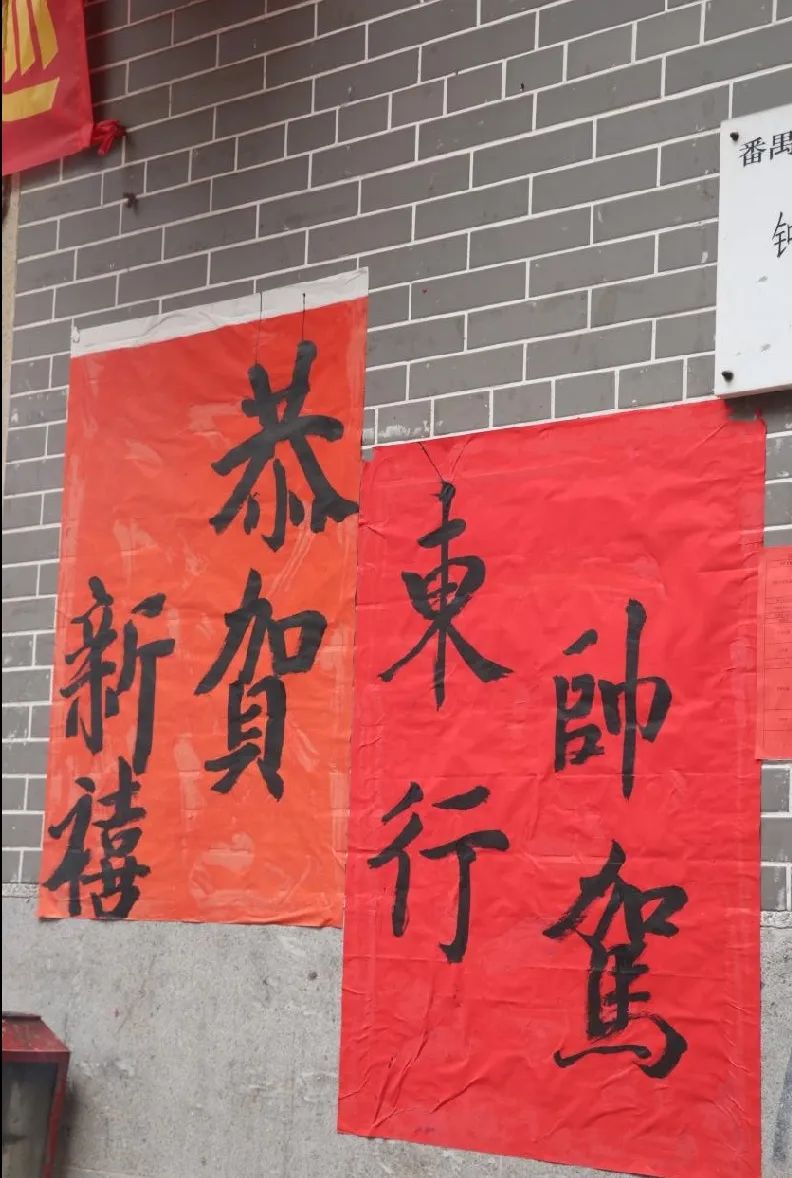 帥駕
東行
恭賀
新禧
番禺